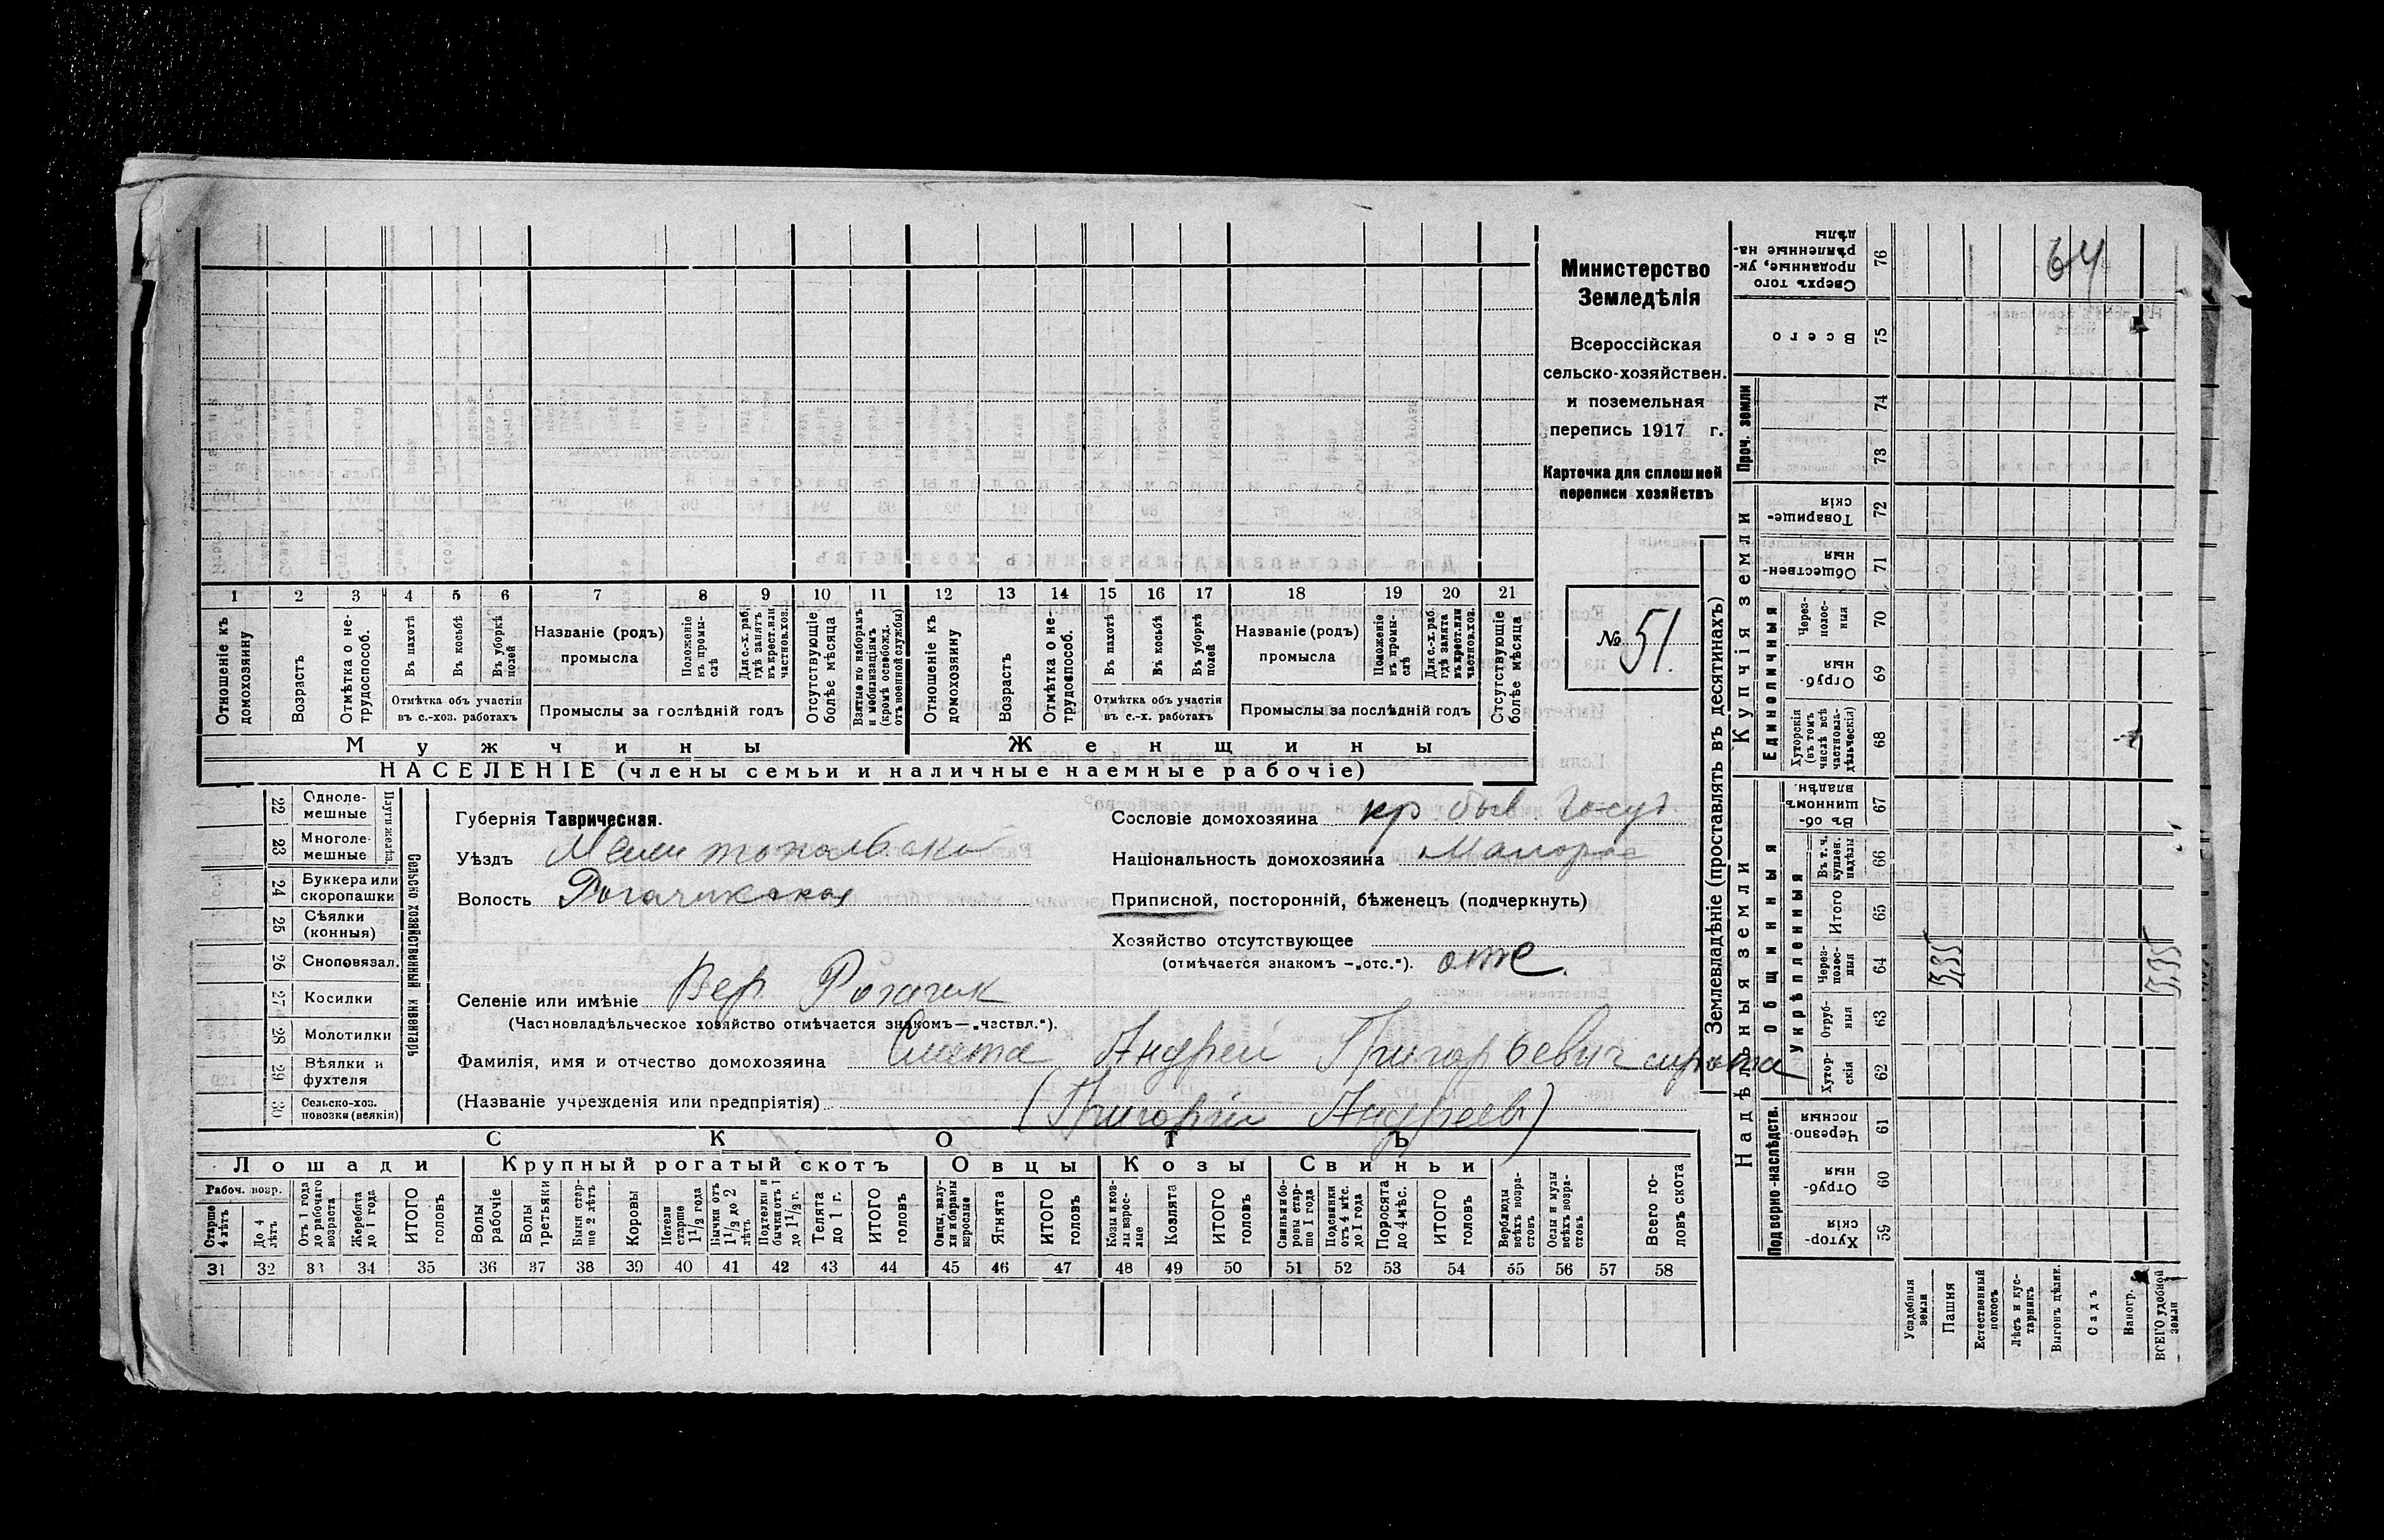 64
Министерство
Земледѣлія
Всероссійская
сельско-хозяйствен.
и поземельная
перепись 1917 г.
Карточка для сплошной
переписи хозяйствъ
№ 51.
1 2 3 4 5 6 7 8 9 10 11 12 13 14 15 16 17 18 19 20 21
Отношеніе къ домохозяину
Возрастъ
Отмѣтка о нетрудоспособ.
Въ пахотѣ
Въ косьбѣ
Въ уборкѣ полей
Отмѣтка объ участіи
въ с.-хоз. работахъ
Названіе (родъ)
промысла
Положеніе въ промыслѣ
Для с.-х. раб. гдѣ занятъ въ крест. или частнов. хоз.
Промыслы за послѣдній годъ
Отсутствующіе болѣе мѣсяца
Взятые по наборамъ и мобилизаціямъ (кромѣ освобожд. отъ военной службы)
Отношеніе къ домохозяину
Возрастъ
Отмѣтка о нетрудоспособ.
Въ пахотѣ
Въ косьбѣ
Въ уборкѣ полей
Отмѣтка объ участіи
въ с.-х. работахъ
Названіе (родъ)
промысла
Положеніе въ промыслѣ
Для с.-х. раб. гдѣ занята въ крест. или частнов. хоз.
Промыслы за послѣдній годъ
Отсутствующіе болѣе мѣсяца
Мужчины
Женщины
НАСЕЛЕНІЕ (члены семьи и наличные наемные рабочіе)
Сельско хозяйственный инвентарь
22 Одноле-
мешные
23 Многоле-
мешные
24 Буккера или
скоропашки
25 Сѣялки
(конныя)
26 Сноповязал.
27 Косилки
28 Молотилки
29 Вѣялки и
фухтеля
30 Сельско-хоз.
повозки (всякія)
Губернія Таврическая.
Уѣздъ Мелитопольскій
Волость Рогачикская
Селеніе или имѣніе Вер. Рогачик
(Частновладѣльческое хозяйство отмѣчается знакомъ—„частвл.“).
Сословіе домохозяина кр быв. Госуд.
Національность домохозяина Малорос
Приписной, посторонній, бѣженецъ (подчеркнуть)
Хозяйство отсутствующее
(отмѣчается знакомъ —„отс.“). отс.
Фамилія, имя и отчество домохозяина Андрей Григорьевич сирота
(Названіе учрежденія или предпріятія) (Григорій Андреев)
СКОТЪ
Лошади
Крупный рогатый скотъ
Овцы
Козы
Свиньи
Рабоч. возр.
Старше 4 лѣтъ
До 4 лѣтъ
Отъ 1 года до рабочаго возраста
Жеребята до 1 года
ИТОГО головъ
Волы рабочіе
Волы третьяки
Быки старше 2 лѣтъ
Коровы
Нетели старше 1½ года
Бычки отъ 1½ до 2 лѣтъ
Подтелки и бычки отъ 1 до 1½ г.
Телята до 1 г.
ИТОГО головъ
Овцы, валухи и бараны взрослые
Ягнята
ИТОГО головъ
Козы и козлы взрослые
Козлята
ИТОГО головъ
Свиньи и боровы старше 1 года
Подсвинки отъ 4 мѣс. до 1 года
Поросята до 4 мѣс.
ИТОГО головъ
Верблюды всѣхъ возрастовъ
Ослы и мулы всѣхъ возрастовъ
Всего головъ скота
31 32 33 34 35 36 37 38 39 40 41 42 43 44 45 46 47 48 49 50 51 52 53 54 55 56 57 58
Землевладѣніе (проставлять въ десятинахъ)
Надѣльныя земли
Купчія земли
Проч. земли
Подворно-наслѣдств.
Общинныя
Укрѣпленныя
Единоличныя
Сверхъ того проданные, укрѣпленные надѣлы 76
Всего 75
74
73
Товарищескія 72
Общественныя 71
Черезполосныя 70
Отрубныя 69
Хуторскія (въ томъ числѣ всѣ частновладѣльческія) 68
Въ общинномъ владѣн. 67
Въ т. ч. куплен. надѣлы 66
Итого 65
Черезполосныя 64
Отрубныя 63
Хуторскія 62
Черезполосныя 61
Отрубныя 60
Хуторскія 59
Усадебныя земли
Пашня
Естественный покосъ
Лѣсъ и кустарникъ
Выгонъ цѣлин.
Садъ
Виногр.
ВСЕГО удобной земли